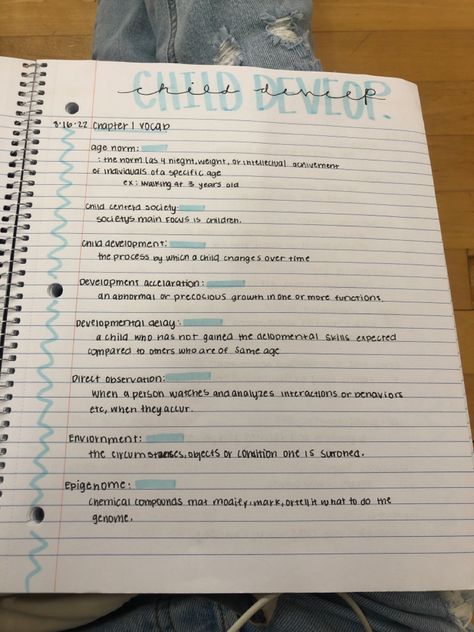 CHILD DEVELOP.
child develop
8·16·22 Chapter 1 vocab
age norm:
: the norm (as 4 hieght, weight, or intellectual achivement
of individuals of a specific age
ex: walking at 3 years old
Child centerd society:
societys main focus is children.
Child development:
the process by which a child changes over time
Development accelaration:
an abnormal or precocious growth in one or more functions.
Developmental delay:
a child who has not gained the delopmental skills expected
compared to others who are of same age
Direct observation:
When a person watches and analyzes interactions or behaviors
etc, when they occur.
Enviornment:
the circumstanses, objects or condition one is surroned.
Epigenome:
Chemical compounds that modify, mark, or tell it what to do the
genome.